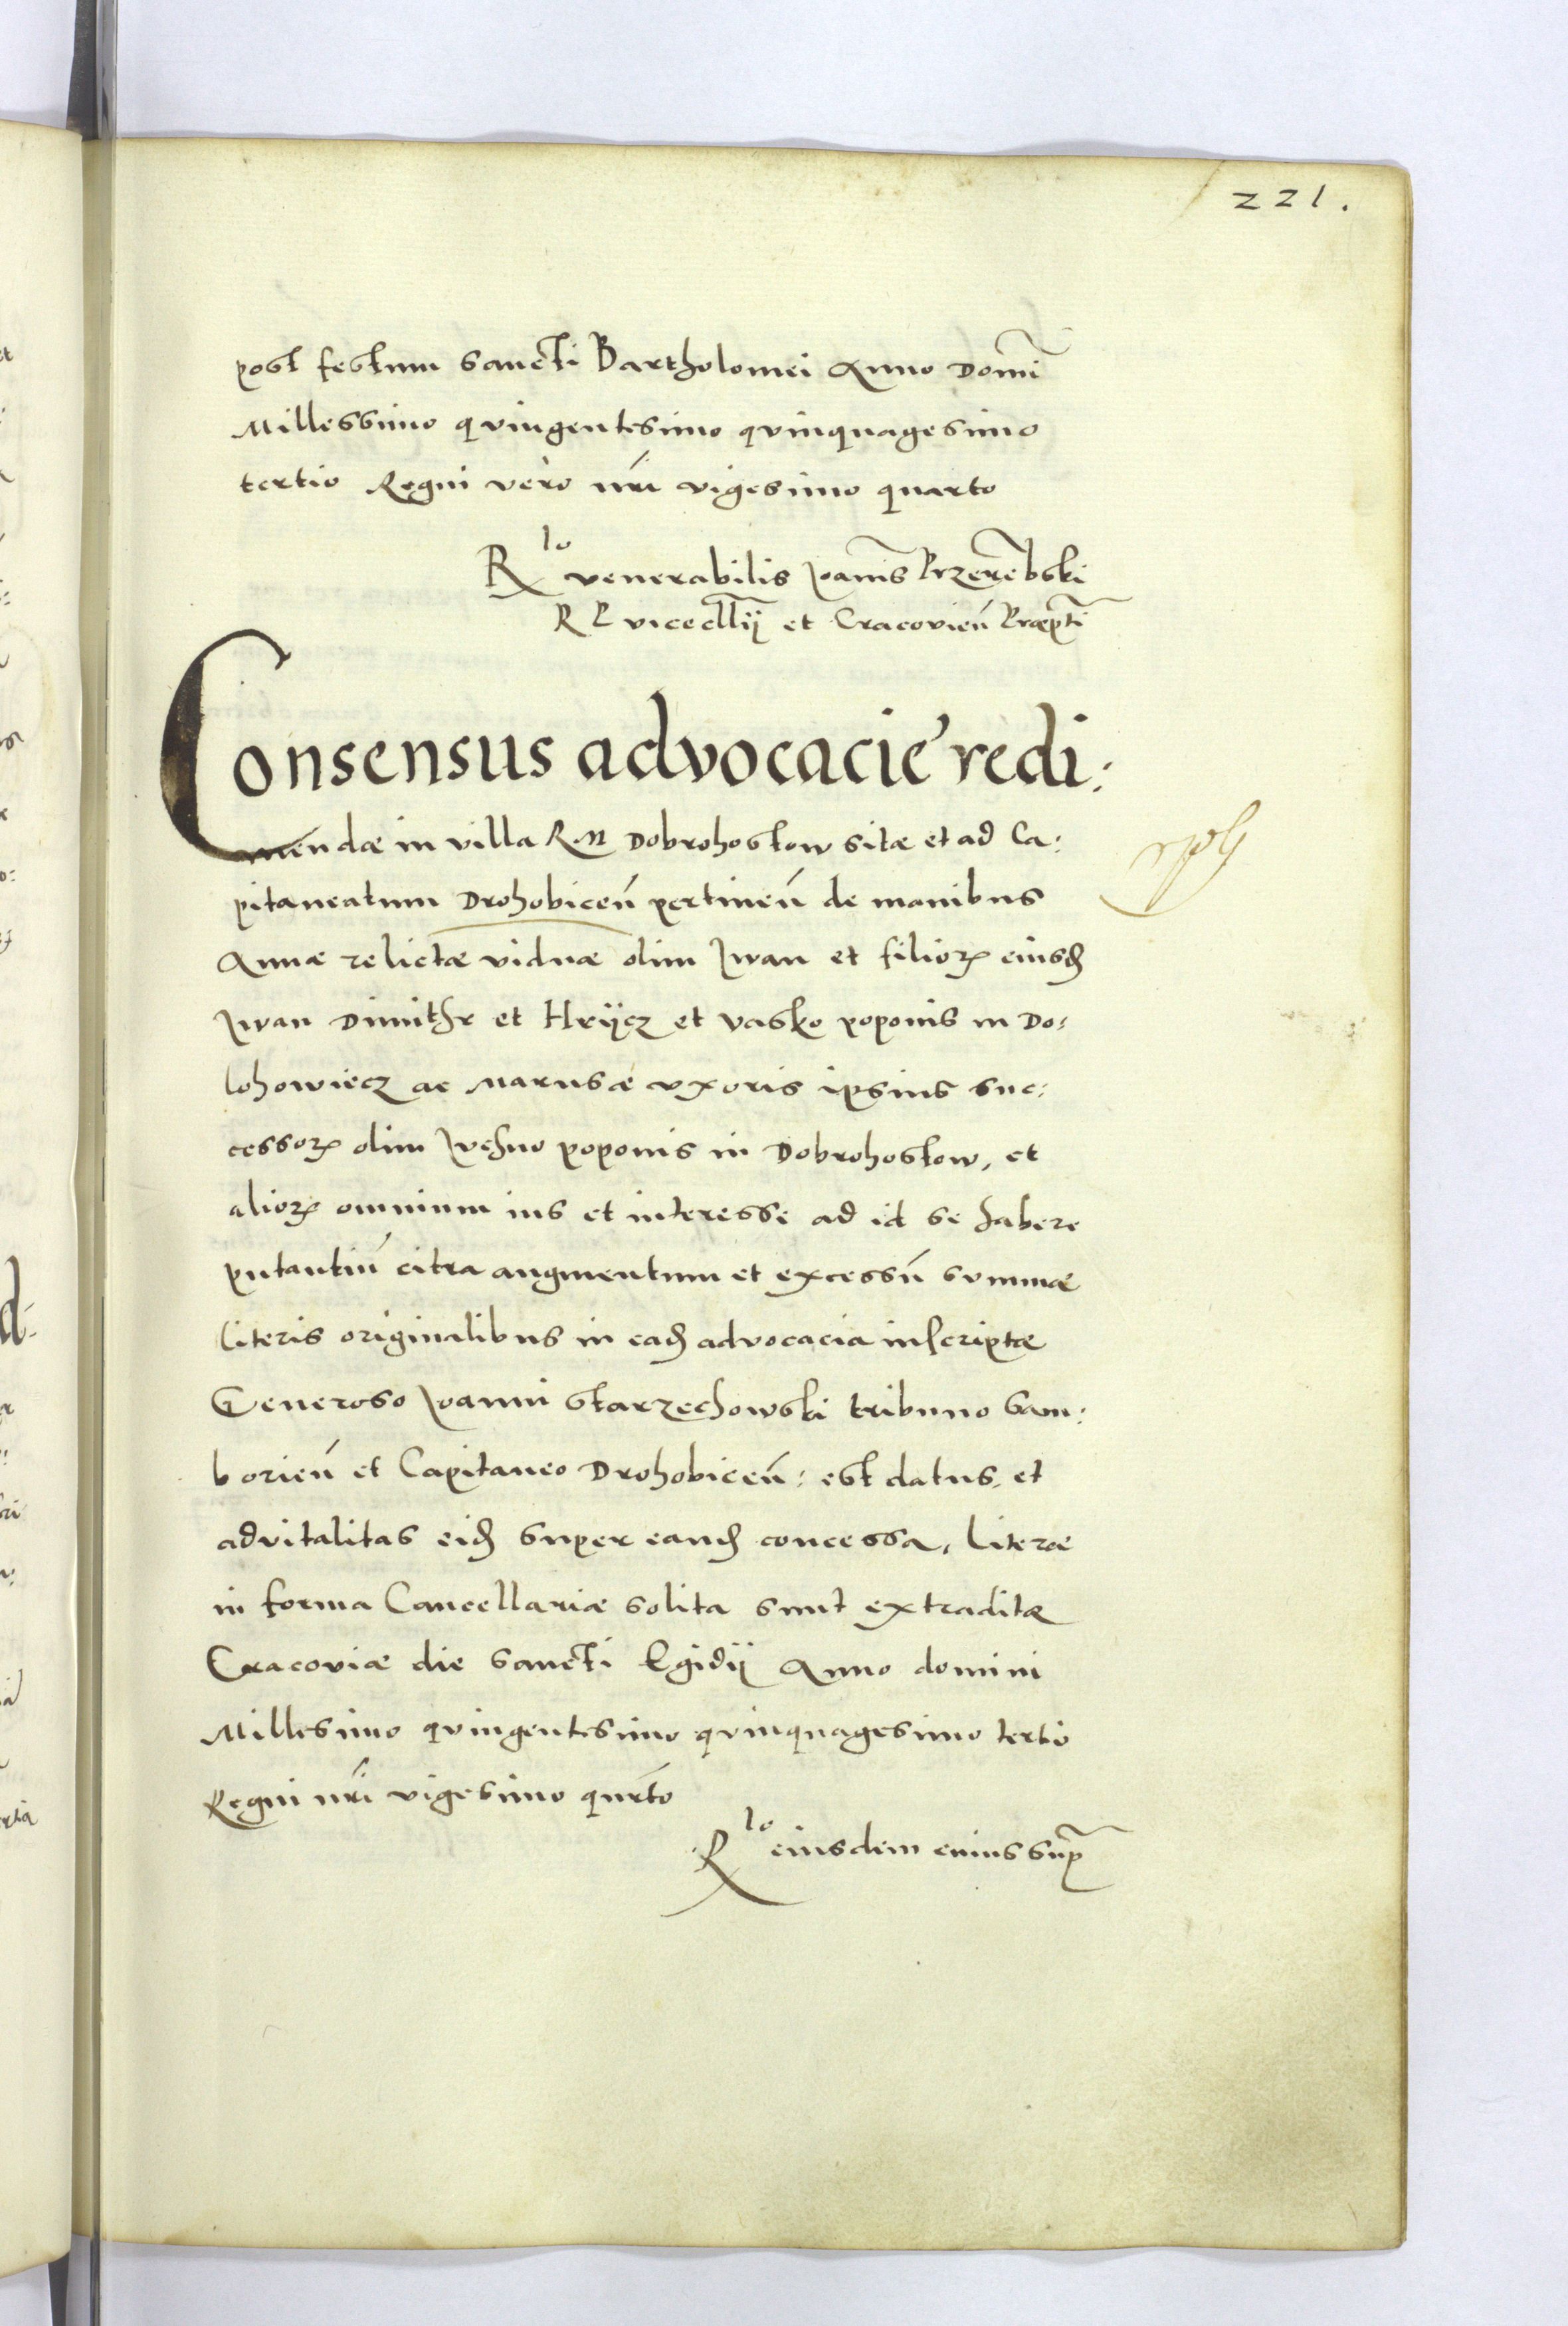 221.
post festum Sancti Bartholomei Anno Domī
Millessimo qvingentesimo qvinquagesimo
tertio Regni vero nr̄i vigesimo quarto
Rlo venerabilis Joanīs Przerēbski
R P vicecllīj et Cracovien̄ Præptī
Consensus advocacie redi:
mēndæ in villa R M Dobrohostow sitæ et ad Ca:
pitaneatum Drohobicen̄ pertinen̄ de manibus
Annæ relictæ viduæ olim Jwan et filioꝝ eiusđ
Jwan Dimithr et Hrÿcz et Vasko poponis in Do:
lohowiecz ac Marusæ vxoris ipsius suc:
cessoꝝ olim poponis in Dobrohostow, et
alioꝝ omnium ius et interesse ad id se habere
putantiū citra augmentum et excessū summæ
literis originalibus in eađ advocacia inscriptæ
Generoso Joanni Starzechowski tribuno Sam:
borien̄ et Capitaneo Drohobicen̄: est datus, et
advitalitas eiđ super eanđ concessa, literæ
in forma Cancellariæ solita sunt extraditæ
Cracoviæ die Sancti Egidij Anno domini
Millesimo qvingentesimo qvinquagesimo tertio
Regni nr̄i vigesimo qurto
Rlo eiusdem cuius sup̄